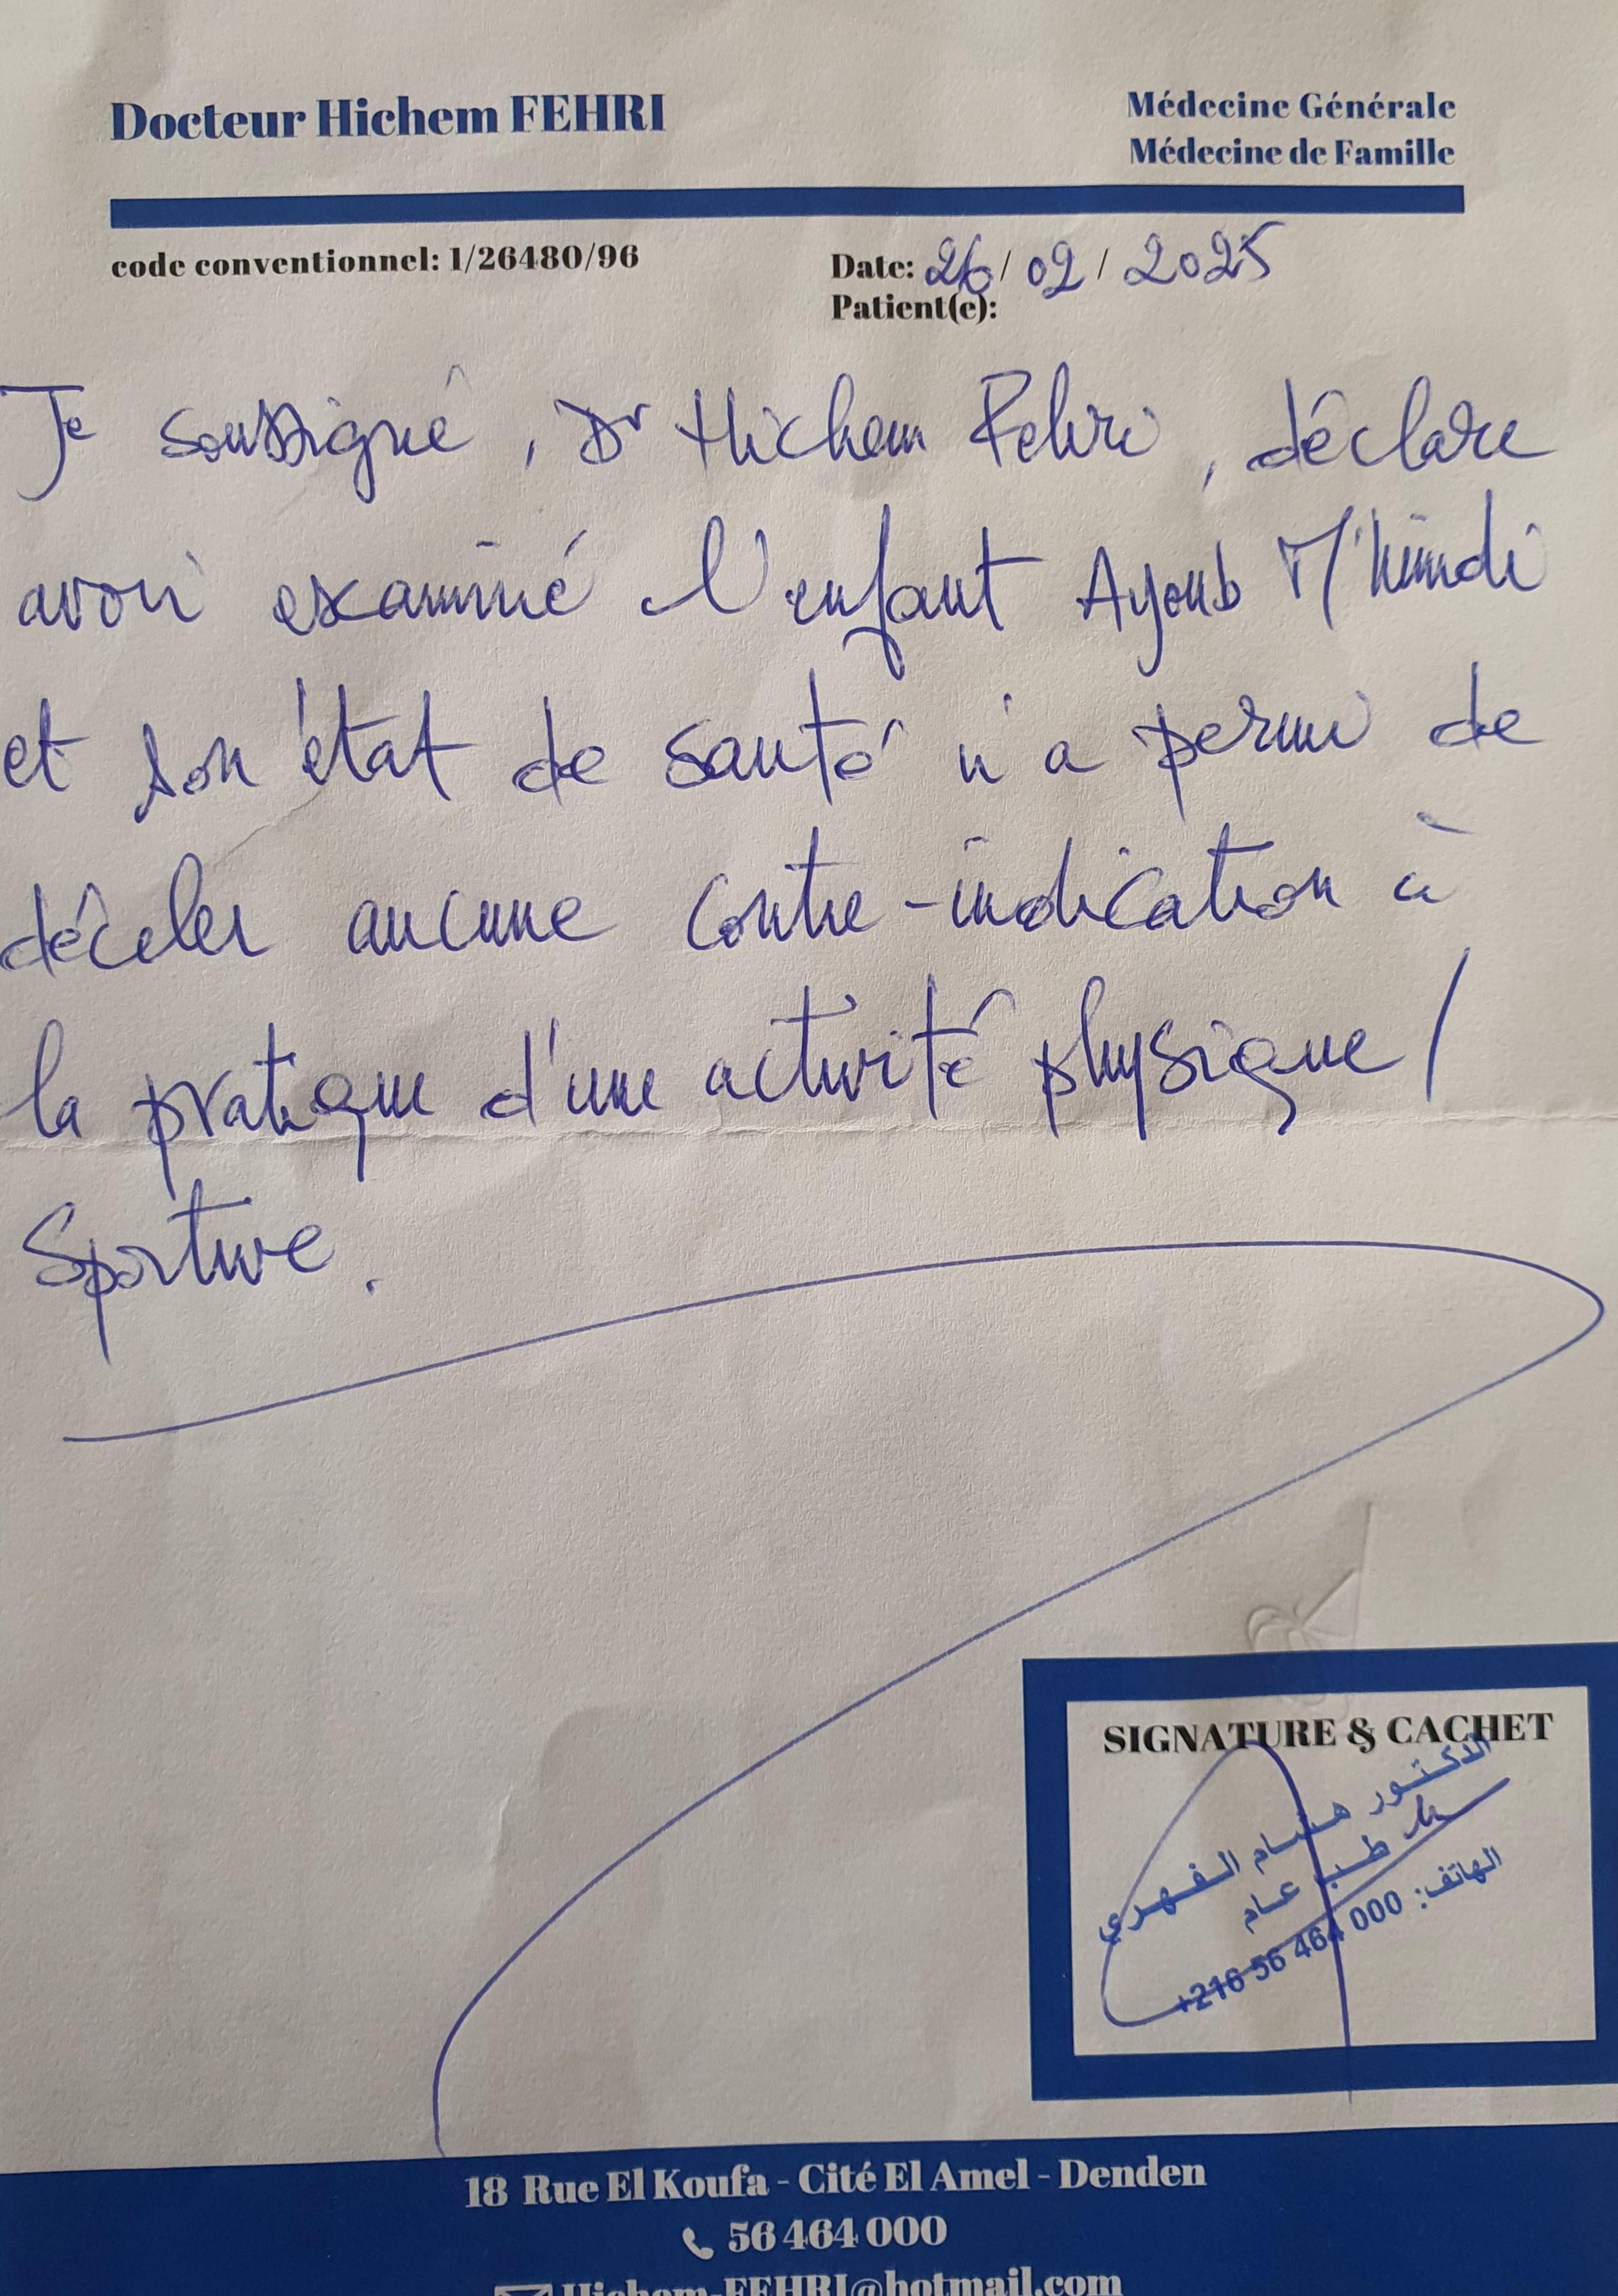 Docteur Hichem FEHRI
Médecine Générale
Médecine de Famille
code conventionnel: 1/26480/96
Date: 26/ 02 / 2025
Patient(e):
Je soussigné, Dr Hichem Fehri, déclare
avoir examiné l'enfant Ayoub M'himdi
et son état de santé n'a permi de
déceler aucune contre-indication à
la pratique d'une activité physique/
Sportive.
SIGNATURE & CACHET
الدكتور هشام الفهري
طب عام
الهاتف: 000 464 56 216+
18 Rue El Koufa - Cité El Amel - Denden
56 464 000
Hichem-FEHRI@hotmail.com